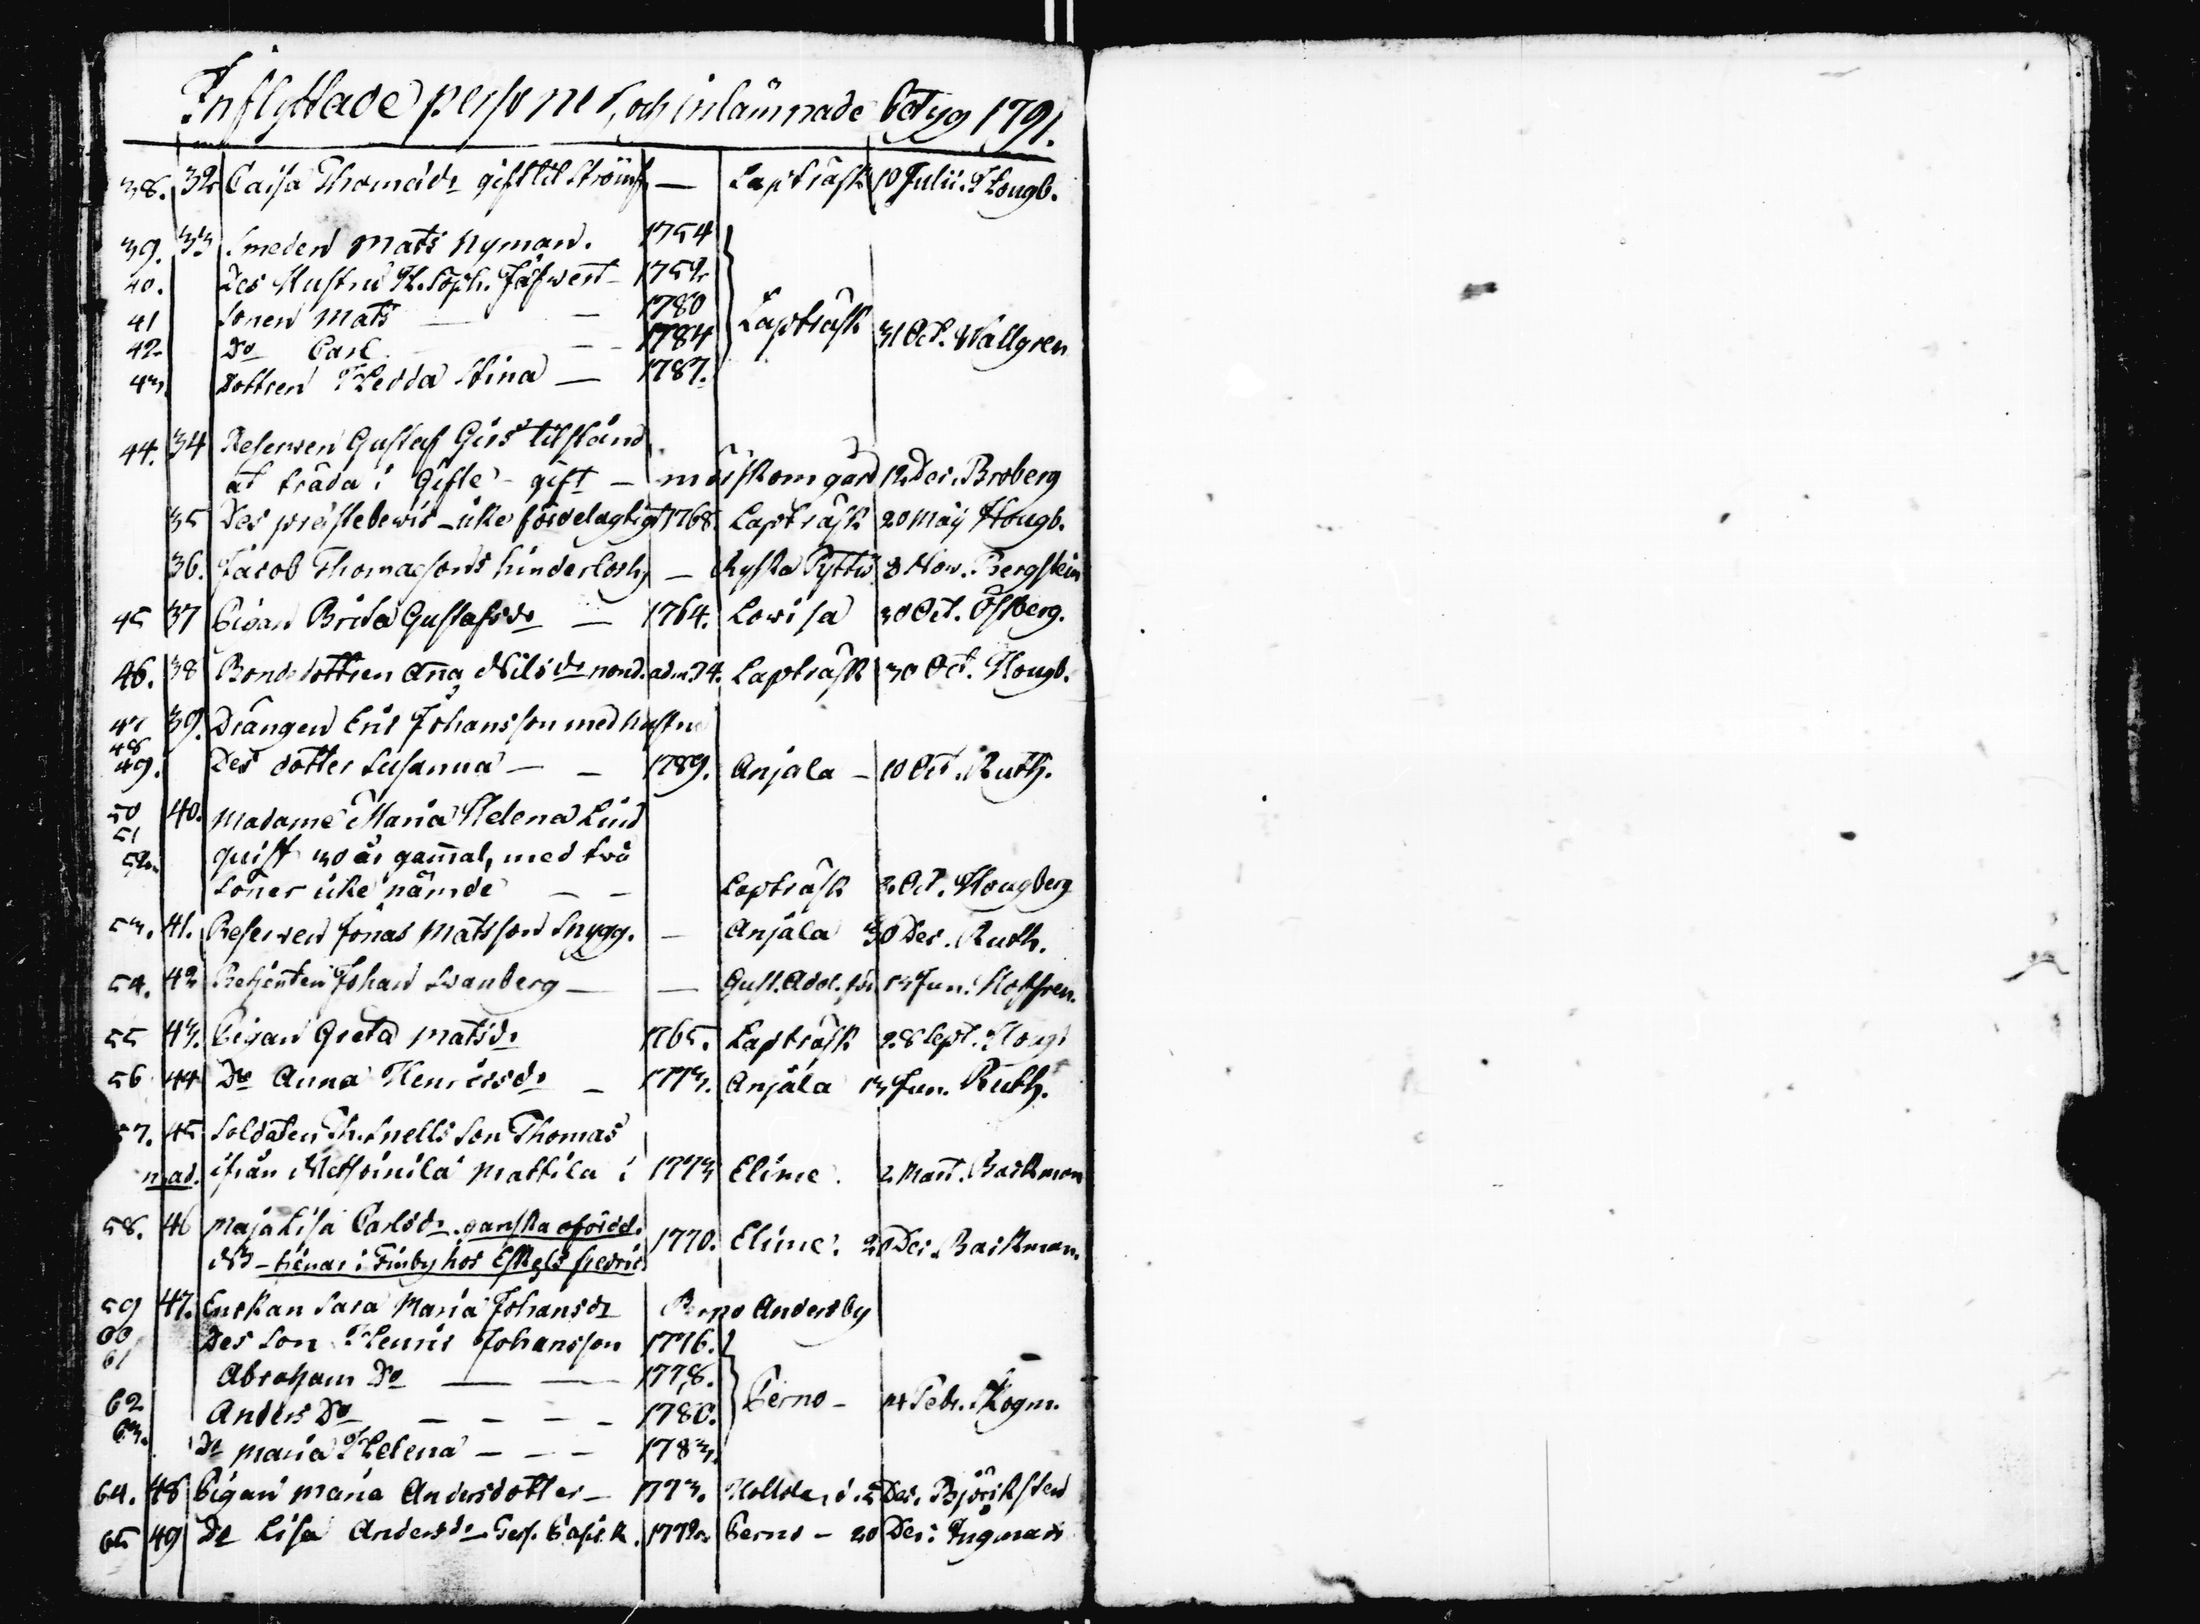 Inflyttade personer, och inlämnade betyg 1791.
38. 32 Caisa Thomædr gift til Strömf. — Lapträsk 10 Julii. Hougb.
39. 33 Smeden Mats Nyman. 1754
40. Des Hustru H. Soph. 1752
41 Sonen Mats — — 1780
42 Do Carl — 1784 Lapträsk 31 Oct. Wallgren
43. Dottren Hedda Stina — 1787.
44. 34 Reserven Gustaf Girs tilstånd
at träda i Gifte - gift — Mörskom gård 12 Dec. Broberg
35 Des prästebevis - icke fördelagtigt 1768. Lapträsk 20 Maij Hougb.
36. Jacob Thomassons hinderlösh. — Ryska Pyttis 3 Nov. Bergstein
45 37 Pigan Brita Gustafsdr — 1764. Lovisa 30 Oct. Östberg.
46. 38 Bondedottren Anna Nilsdr nond. adm. 74. Lapträsk 30 Oct. Hougb.
47 39. Drängen Eric Johansson med hustru
48
49. Des dotter Susanna — — 1789. Anjala — 10 Oct. Ruth.
50 40. Madame Maria Helena Lind
51
52 quist 30 år gammal, med två
Söner icke nämde — — Lapträsk 2 Oct. Hougberg
53. 41. Reserven Jonas Matsson Snygg. — Anjala 30 Dec. Ruth.
54. 42 Betjenten Johan Svanberg — — Gust. Adol. för. 13 Jun. Hoffren.
55 43. Pigan Greta Matsdr 1765. Lapträsk 28 Sept. Houg.
56 44 Do Anna Henricsdr — 1773. Anjala 13 Jun. Ruth.
57. 45 Soldaten Th. Snells Son Thomas
n. ad. ifrån Mattila i 1773 Elime. 2 Mart. Backman
58. 46 Maja Lisa Carlsdr. ganska oförd.
NB — tienar i Finby hos Eskels Fredric 1770. Elime. 20 Dec. Backman.
59 47. Enckan Sara Maria Johansdr Perno Andersby
60 Des Son Henric Johansson 1776.
61 Abraham Do — — 1778.
62 Anders Do — — — — 1780. Perno — 14 Febr. Skogm.
63. Dr Maria Helena — — — 1783.
64. 48 Pigan Maria Andersdotter — 1773. 5 Dec. Björksten
65 49 Do Lisa Andersdr 1772. Perno — 20 Dec. Ingman